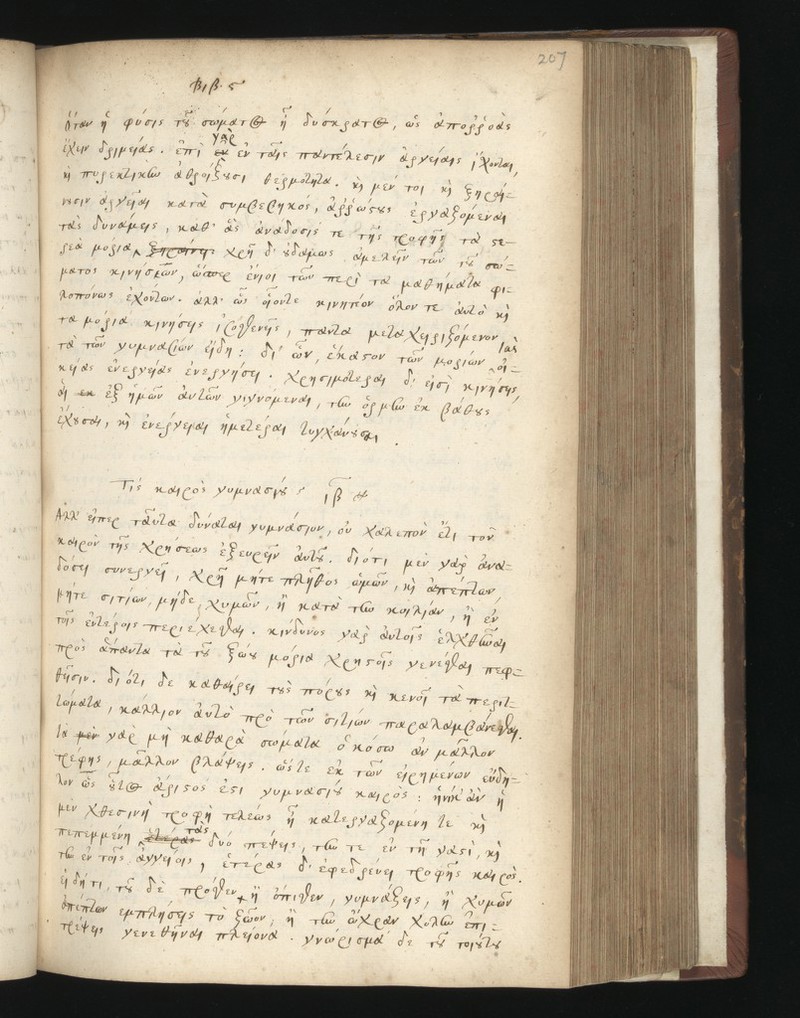 207
Βιβ. ϛ
ὅταν ἡ φύσις τοῦ σώματος ᾖ δύσκρατος, ὡς ἀποῤῥοὰς
ἔχειν δριμείας. ἐπὶ γὰρ ἐν ταῖς παντέλεσιν ἀργείαις ἴσχονται,
κỳ πυρεκτικὴν ἀθροίζουσι θερμότητα. κỳ μέν τοι κỳ ξηραί=
νεσιν ἀργεῖαι κατὰ συμβεβηκὸς, ἀῤῥώστους ἐργαζόμεναι
τὰς δυνάμεις, καθ' ἃς ἀναδοσίς τε τῆς τροφῆς τὰ στε-
ρεὰ μόρια. χρὴ δ' οὐδαμῶς ἀμελεῖν τῶν τοῦ σώ=
ματος κινήσεων, ὥσπερ ἔνιοι τῶν περὶ τὰ μαθήματα φι=
λοπόνως ἐχόντων. ἀλλ' ὡς οἷόντε κινητέον ὅλον τε αὐτὸ κỳ
τὰ μόρια κινήσεις ἰσοσθενεῖς, πάντα μεταχειριζόμενον
τὰ τῶν γυμνασίων εἴδη: δι' ὧν, ἕκαστον τῶν μορίων τὰς οἰ=
κείας ἐνεργείας ἐνεργήσει. χρησιμώτεραι δ' εἰσὶ κινήσεις,
αἱ ἐξ ἡμῶν αὐτῶν γιγνόμεναι, τὴν ὁρμὴν ἐκ βάθους
ἔχουσαι, κỳ ἐνέργειαι ἡμετέραι τυγχάνουσαι.
Τίς καιρὸς γυμνασίου ; ιβ
Ἀλλ' εἴπερ ταῦτα δύναται γυμνάσιον, οὐ χαλεπὸν ἔτι τὸν
καιρὸν τῆς χρήσεως ἐξευρεῖν αὐτοῦ. διότι μὲν γὰρ ἀνα=
δόσει συνεργεῖ, χρὴ μήτε πλῆθος ὠμῶν, κỳ ἀπέπτων,
μήτε σιτίων, μήδε χυμῶν, ἢ κατὰ τὴν κοιλίαν, ἢ ἐν
τοῖς ἐντέροις περιέχεσθαι. κίνδυνος γὰρ αὐτοῖς ἑλχθῆναι
πρὸς ἅπαντα τὰ τοῦ ζώου μόρια χρηστοῖς γενέσθαι πεφ=
θεῖσιν. διότι δὲ καθαίρει τοὺς πόρους κỳ κενοῖ τὰ περιτ=
τώματα, κάλλιον αὐτὸ πρὸ τῶν σιτίων παραλαμβάνεσθαι.
τὰ γὰρ μὴ καθαρὰ σώματα ὁκόσω ἂν μᾶλλον
τρέφῃς, μᾶλλον βλάψεις. ὥστε ἐκ τῶν εἰρημένων εὔδη=
λον ὡς οὗτος ἄριστος ἐστι γυμνασίου καιρὸς: ἡνίκ' ἂν ἡ
μὲν χθεσινὴ τροφὴ τελέως ᾖ κατεργαζομένη τε κỳ
πεπεμμένη τὰς δύο πέψεις, τὴν τε ἐν τῇ γαστρὶ, κỳ
τὴν ἐν τοῖς ἀγγείοις, ἑτέρας δ' ἐφεδρεύει τροφῆς καιρὸς.
εἰ δήτι, τοῦ δὲ πρόσθεν ἢ ὄπισθεν, γυμνάζεις, ἢ χυμῶν
ἀπέπτων ἐμπλήσεις τὸ ζῶον, ἢ τὴν ὠχρὰν χολὴν ἐπι=
τρέψεις γενεθῆναι πλείονα. γνώρισμα δὲ τοῦ τοιούτου